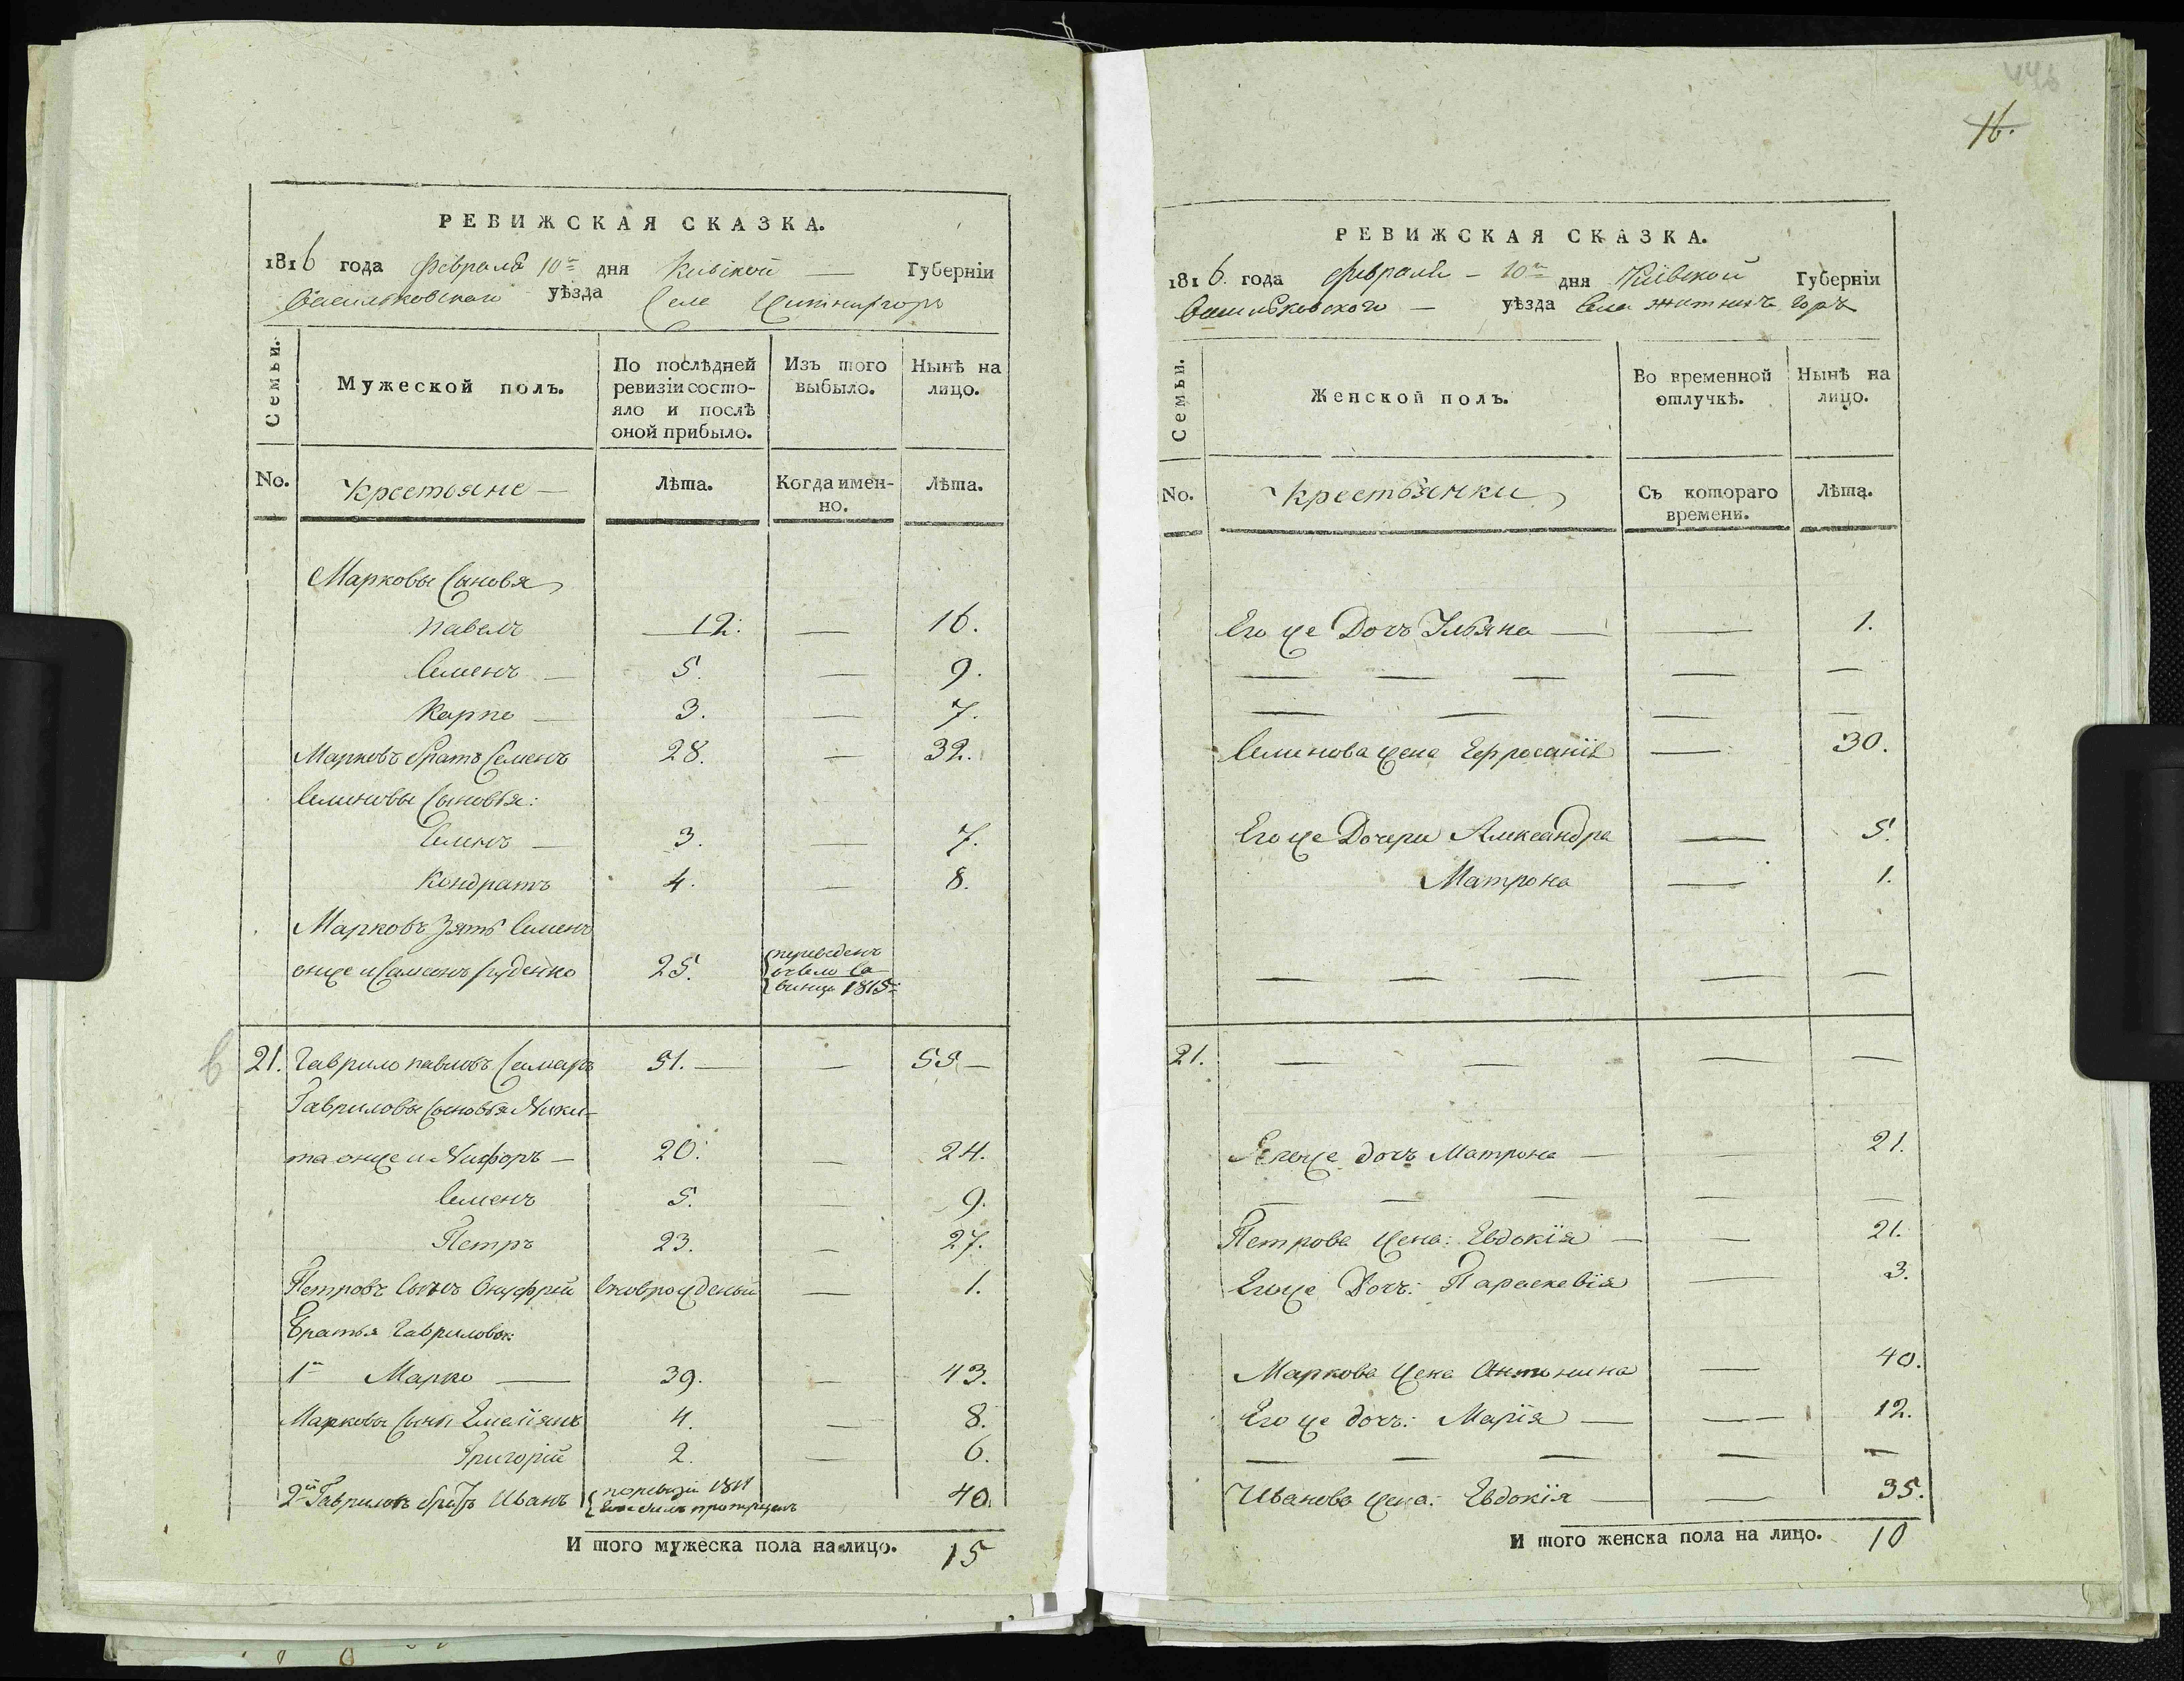 РЕВИЖСКАЯ СКАЗКА.
1816 года февраля 10го дня Киевской Губерніи
Васильковского уѣзда Села Житнихгоръ
Семьи.
Мужеской полъ.
По послѣдней ревизіи состо-
яло и послѣ
оной прибыло.
Изъ того выбыло.
Нынѣ на лицо.
No. Крестьяне Лѣта. Когда имен-
но. Лѣта.
Марковы Сыновя
павелъ 12. — 16.
Семенъ — 5. — 9.
Карпо — 3. — 7.
Марковъ братъ Семенъ 28. — 32.
Семеновы Сыновья:
Семенъ — 3. — 7.
Кондратъ 4. — 8.
Марковъ зять Семенъ
онже и Самсонъ Руденко 25. переведенъ
1815
21. Гаврило павловъ 51. — — 55 —
Гавриловы Сыновья Ники-
та онже и Никфоръ — 20. — 24.
Семенъ 5. — 9.
Петръ 23. — 27.
Петровъ Сынъ Онуфрій вновърожденый — 1.
Братья Гавриловы:
1й Марко — 39. — 43.
Марковы Сыны Емеліянъ 4. — 8.
Григорій 2. — 6.
2й Гавриловъ братъ Иванъ поревизіи 1811 40.
И того мужеска пола на лицо. 15
446
16.
РЕВИЖСКАЯ СКАЗКА.
1816. года февраля — 10го дня Кіевской Губерніи
Васильковского — уѣзда Села Житнихъ Горъ
Семьи.
Женской полъ.
Во временной отлучкѣ.
Нынѣ на лицо.
No. Крестьянки Съ котораго
времени. Лѣта.
Его же Дочъ Ульяна — — 1.
— — — — —
— — — —
Семенова жена Ефросинія — 30.
Его же Дочери Александра — 5.
Матрона — 1.
— — — — —
21. — — — —
Его же дочъ Матрона — — 21.
— — — — —
Петрова жена: Евдокія — — 21.
Егоже Дочъ: Параскевія — 3.
Маркова жена Антонина — 40.
Его же дочъ: Марія — — 12.
— — — — —
Иванова жена: Евдокія — — 35.
И того женска пола на лицо. 10